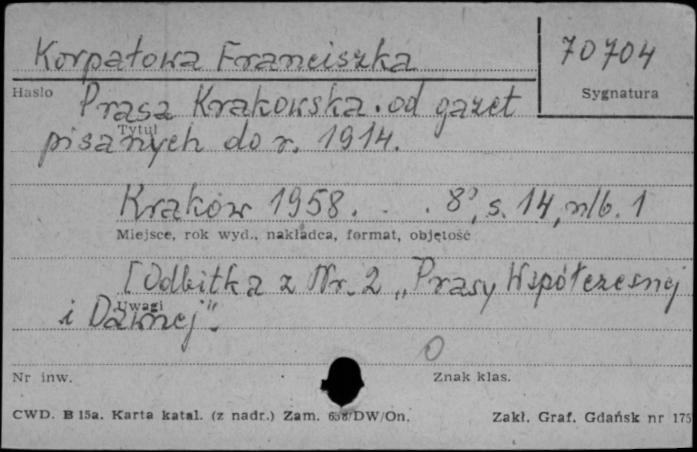 Korpałowa Franciszka
70704
Hasło
Sygnatura
Prasa Krakowska. od gazet
Tytuł
pisanych do r. 1914.
Kraków 1958. . . 8°, s. 14, nlb. 1
Miejsce, rok wyd., nakładca, format, objętość
[Odbitka z Nr. 2 „Prasy Współczesnej
Uwagi
i Dawnej".
0
Nr inw.
Znak klas.
CWD. B 15a. Karta katal. (z nadr.) Zam. /DW/On.
Zakł. Graf. Gdańsk nr 175